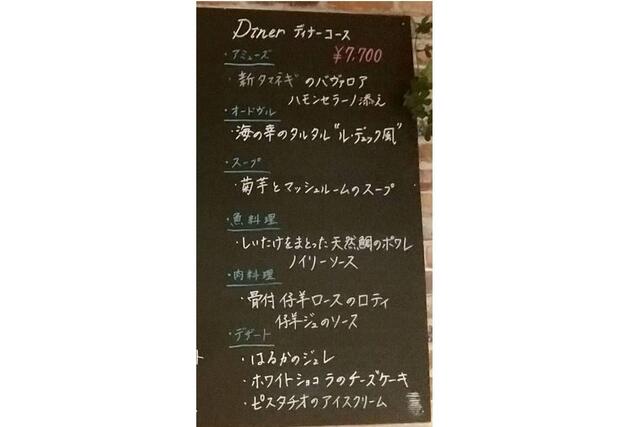 Diner ディナーコース
¥7,700
・アミューズ
・新タマネギのババロア
ハモンセラーノ添え
・オードヴル
・海の幸のタルタル"ル・デュック風"
・スープ
・菊芋とマッシュルームのスープ
・魚料理
・しいたけをまとった天然鯛のポワレ
ノイリーソース
・肉料理
・骨付仔羊ロースのロティ
仔羊ジュのソース
・デザート
・はるかのジュレ
・ホワイトショコラのチーズケーキ
・ピスタチオのアイスクリーム